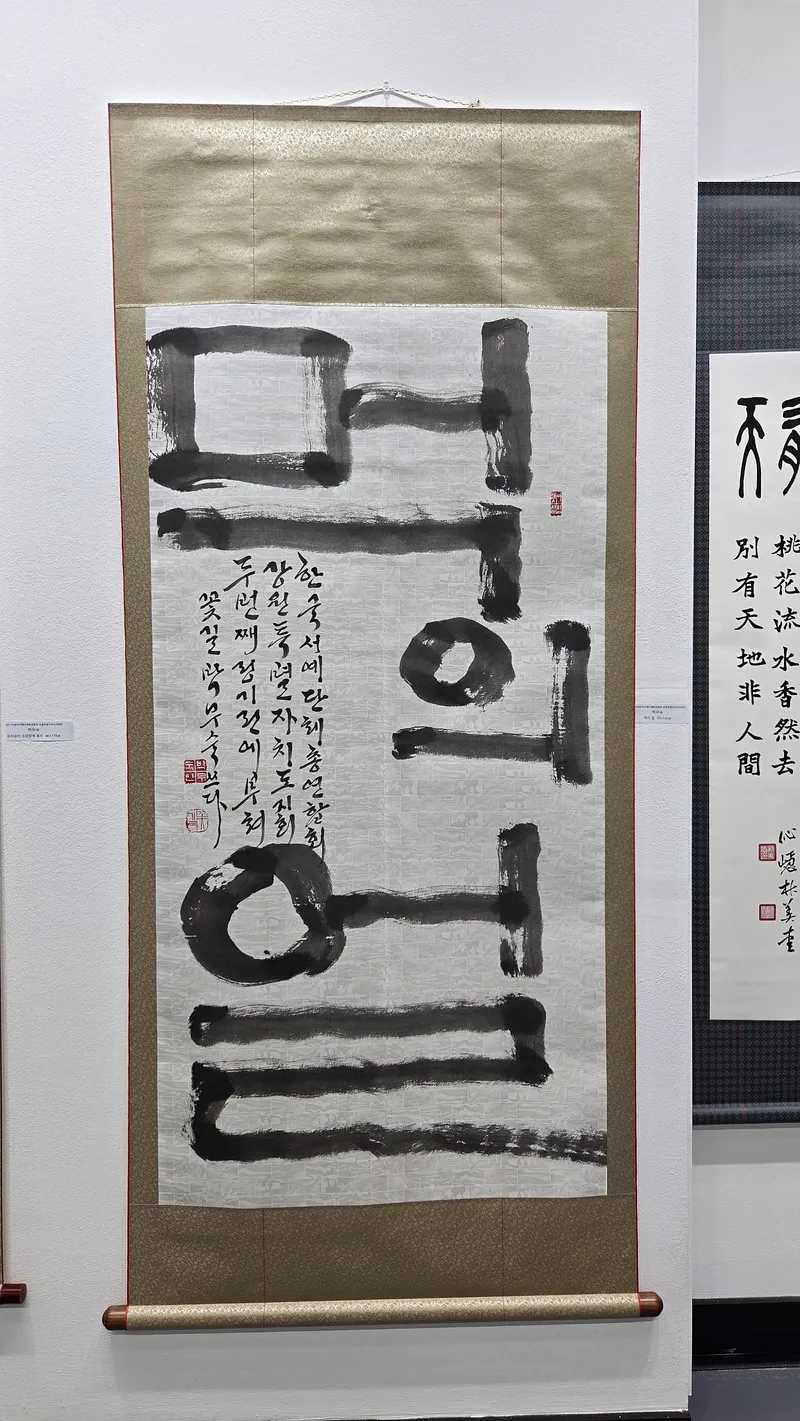 먹의 얼
한국서예단체총연합회
강원특별자치도지회
두번째 정기전에 부쳐
꽃길 박무숙 쓰다
桃花流水香然去
別有天地非人間